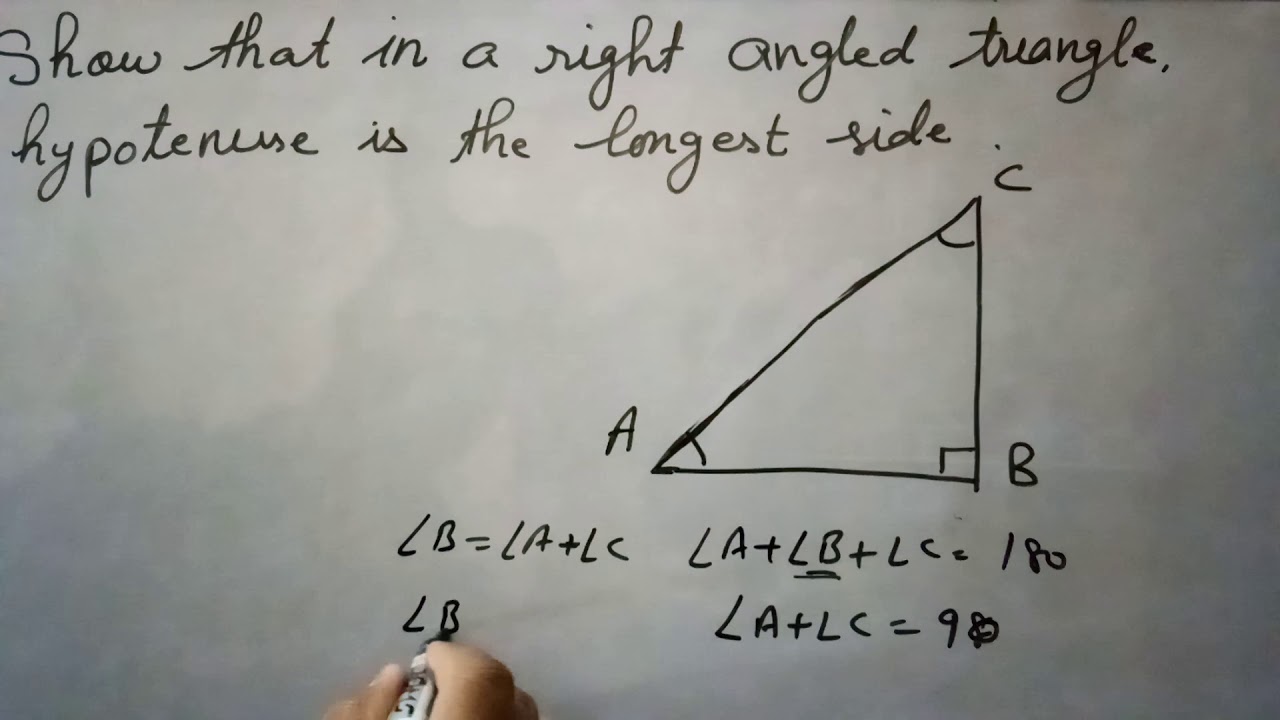 Show that in a right angled triangle,
hypotenuse is the longest side.
C
A
B
∠B = ∠A+∠C
∠A+∠B+∠C = 180
∠B
∠A+∠C = 90